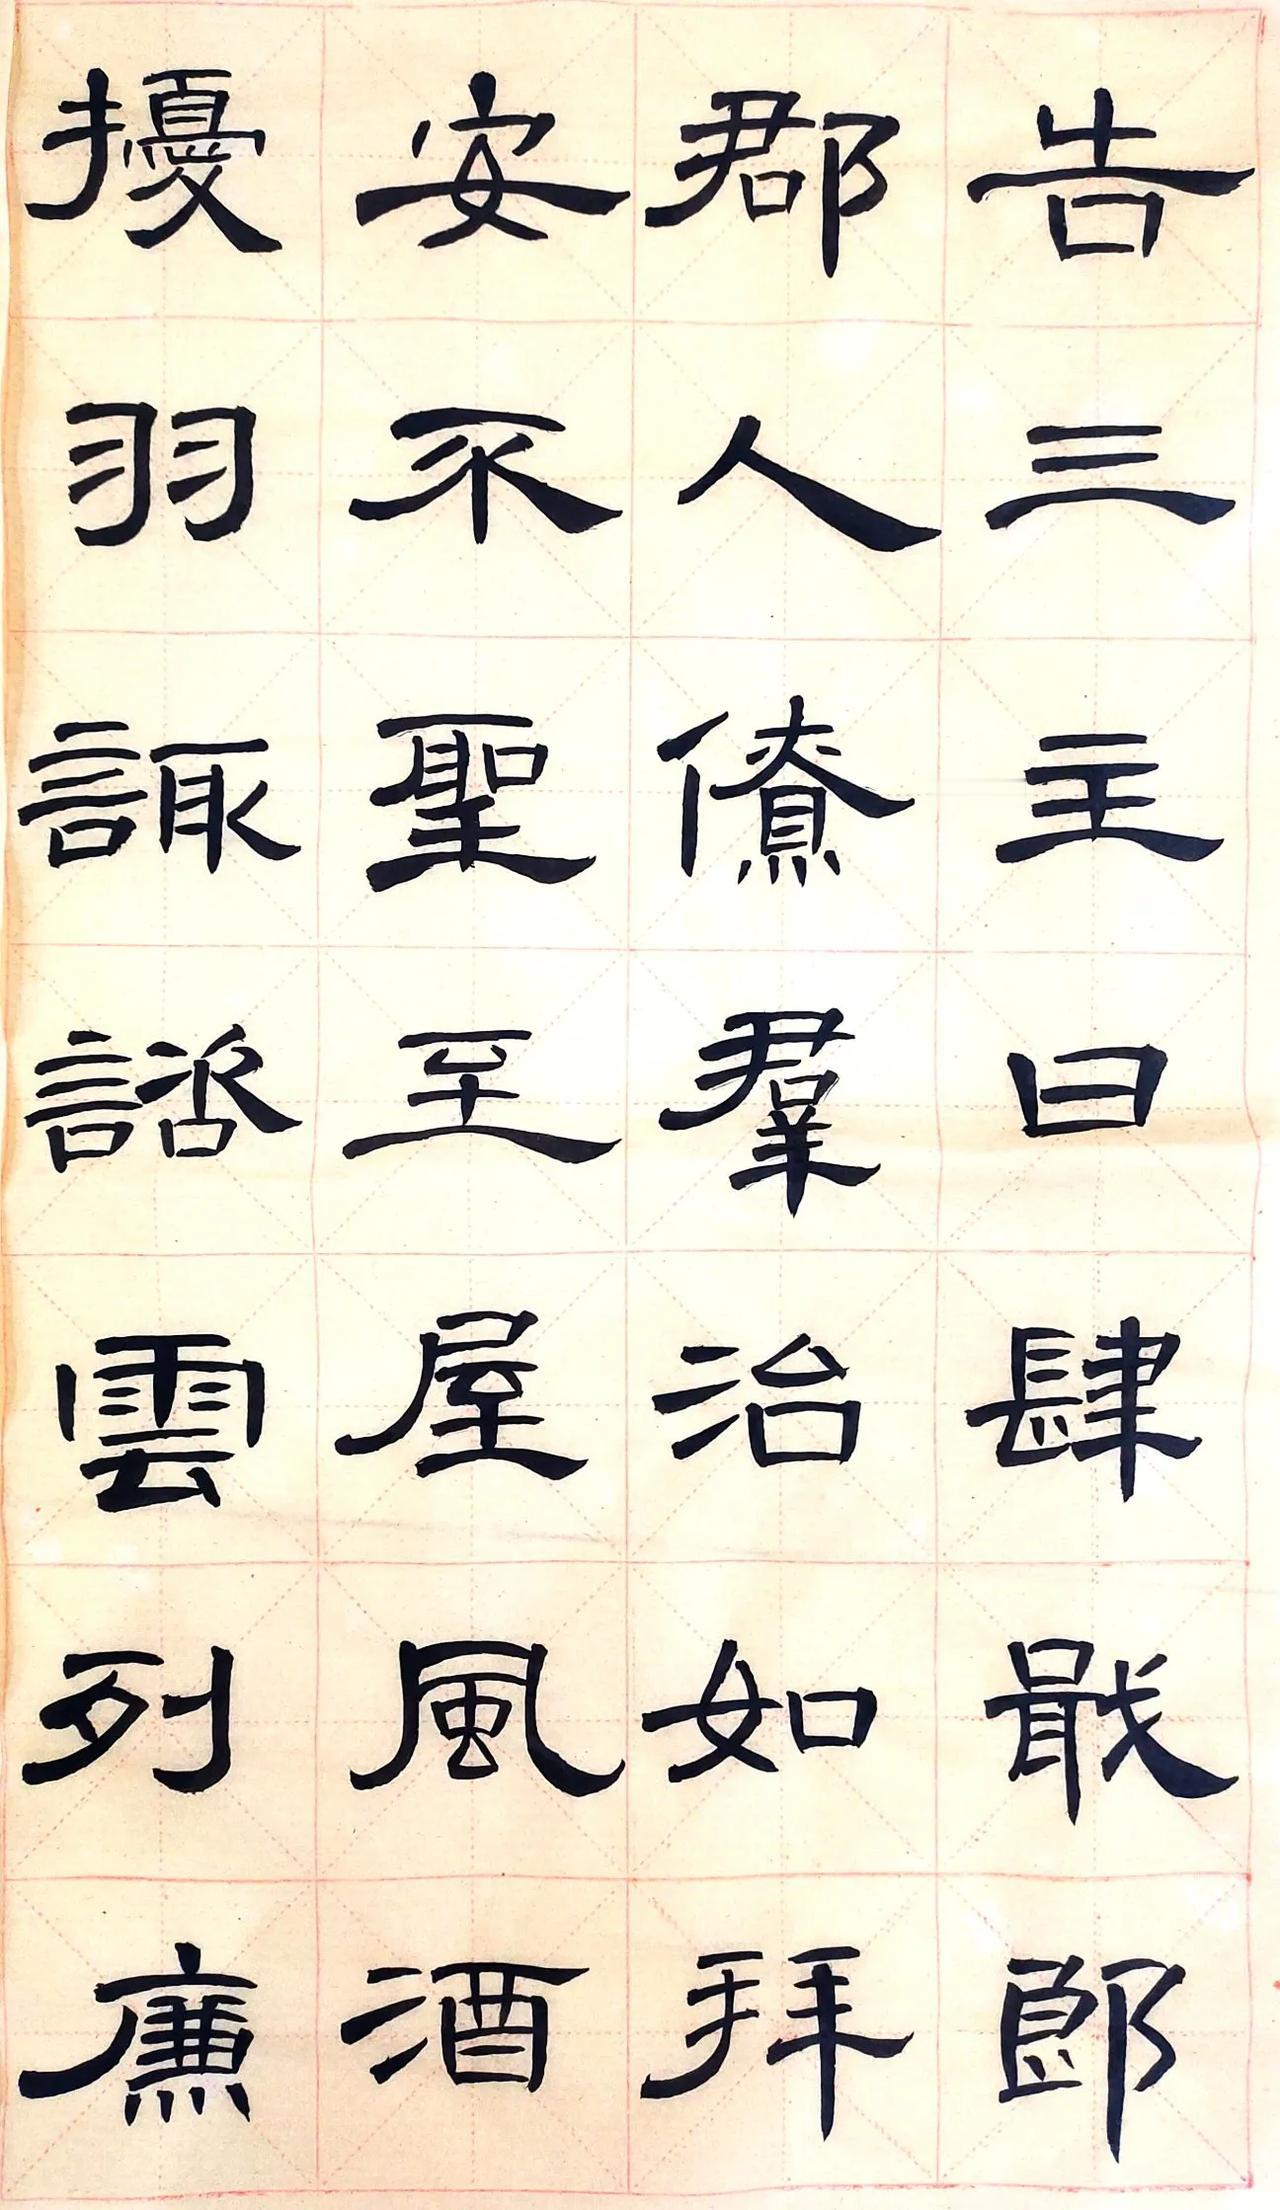 告三主曰肆戢郎
郡人僚羣治如拜
安不聖至屋風酒
擾羽諏諮雲列廉